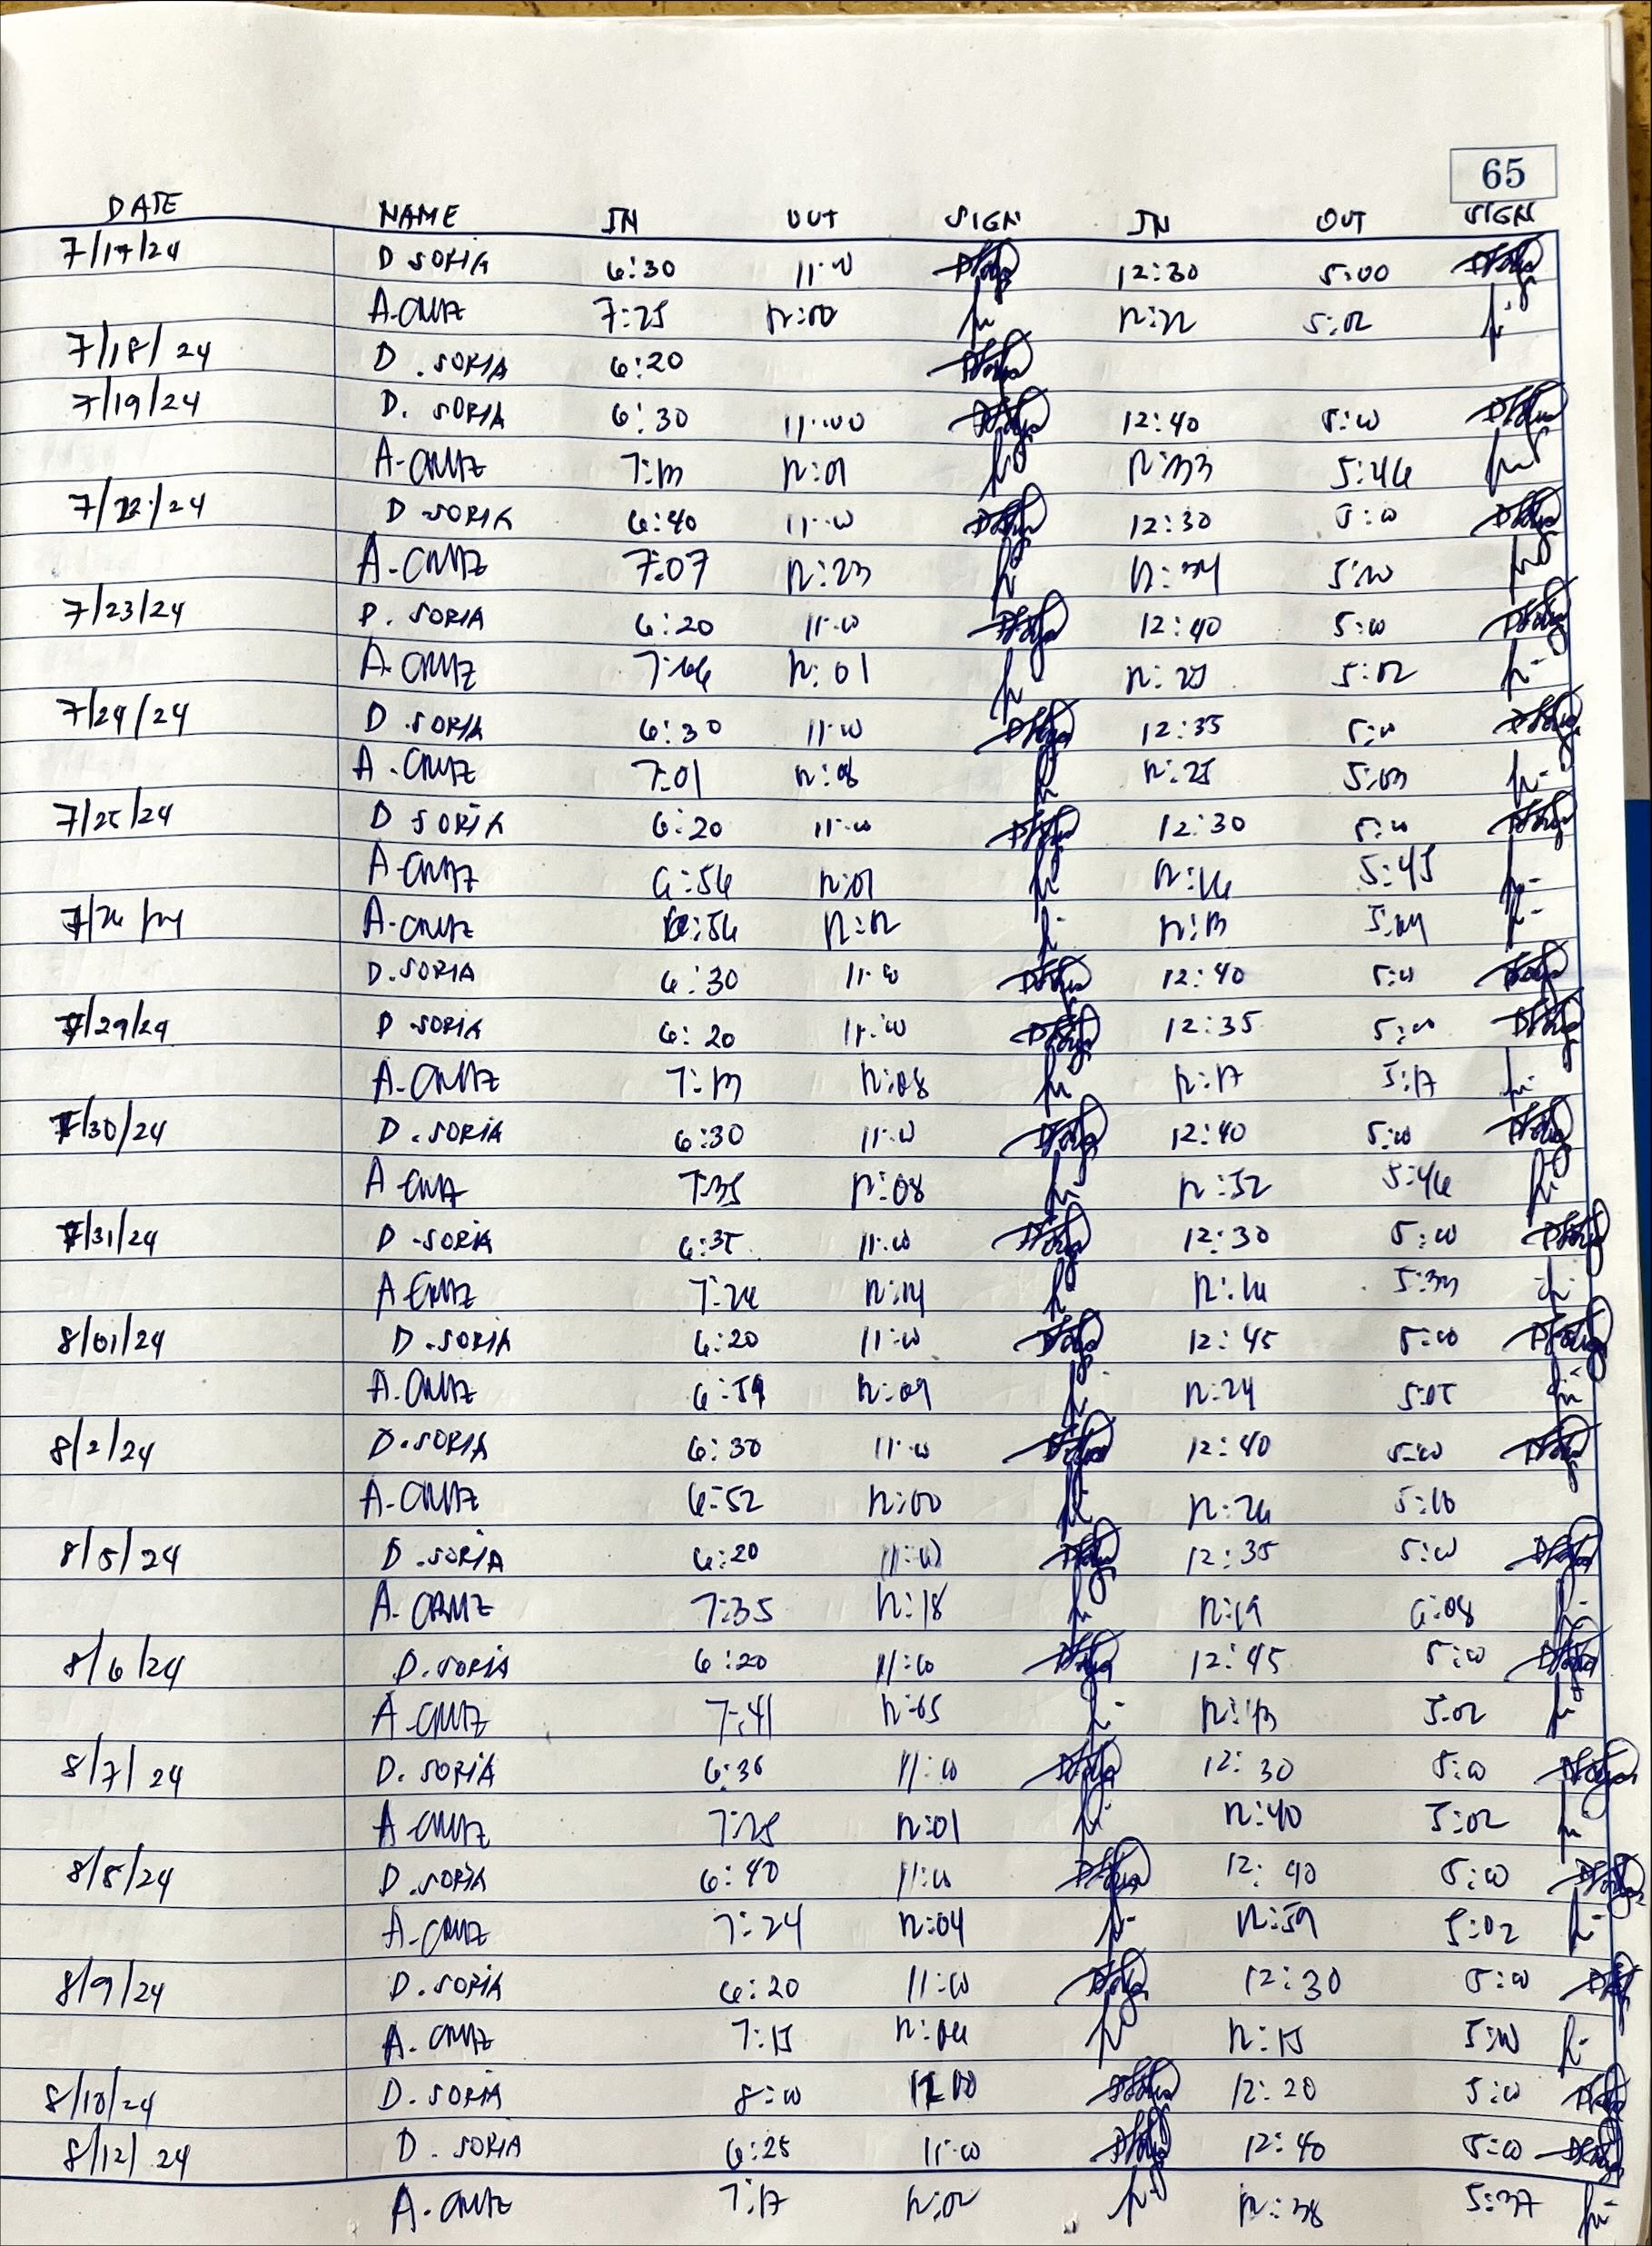 65
DATE NAME IN OUT SIGN IN OUT SIGN
7/17/24 D SORIA 6:30 11:00 12:30 5:00
A. CRUZ 7:25 12:00 12:22 5:02
7/18/24 D. SORIA 6:20
7/19/24 D. SORIA 6:30 11:00 12:40 5:00
A-CRUZ 7:13 12:01 12:33 5:46
7/22/24 D SORIA 6:40 11:00 12:30 5:00
A-CRUZ 7:07 12:23 12:34
7/23/24 D. SORIA 6:20 11:00 12:40 5:00
A. CRUZ 12:01 12:25 5:02
7/24/24 D. SORIA 6:30 11:00 12:35 5:00
A. CRUZ 7:01 12:08 12:25 5:03
7/25/24 D SORIA 6:20 11:00 12:30 5:00
A-CRUZ 6:56 12:01 12:16 5:45
7/26/24 A-CRUZ 6:56 12:12 12:13 5:04
D. SORIA 6:30 11:00 12:40 5:00
7/29/24 D SORIA 6:20 11:00 12:35 5:00
A-CRUZ 7:13 12:08 12:17 5:17
7/30/24 D. SORIA 6:30 11:00 12:40 5:00
A CRUZ 7:35 12:08 12:52 5:46
7/31/24 D SORIA 6:35 11:00 12:30 5:00
A CRUZ 7:26 12:14 12:16 5:33
8/01/24 D. SORIA 6:20 11:00 12:45 5:00
A. CRUZ 6:59 12:09 12:24 5:05
8/2/24 D. SORIA 6:30 11:00 12:40 5:00
A-CRUZ 6:52 12:00 12:26 5:10
8/5/24 D. SORIA 6:20 11:00 12:35 5:00
A-CRUZ 7:35 12:18 12:19 6:08
8/6/24 D. SORIA 6:20 11:00 12:45 5:00
A-CRUZ 7:41 12:05 12:13 5:02
8/7/24 D. SORIA 6:30 11:00 12:30 5:00
A-CRUZ 7:25 12:01 12:40 5:02
8/8/24 D. SORIA 6:40 11:00 12:40 5:00
A-CRUZ 7:24 12:04 12:59 5:02
8/9/24 D. SORIA 6:20 11:00 12:30 5:00
A. CRUZ 7:15 12:06 12:15 5:10
8/10/24 D. SORIA 8:00 12:00 12:20 5:00
8/12/24 D. SORIA 6:25 11:00 12:40 5:00
A. CRUZ 7:17 12:02 12:38 5:37